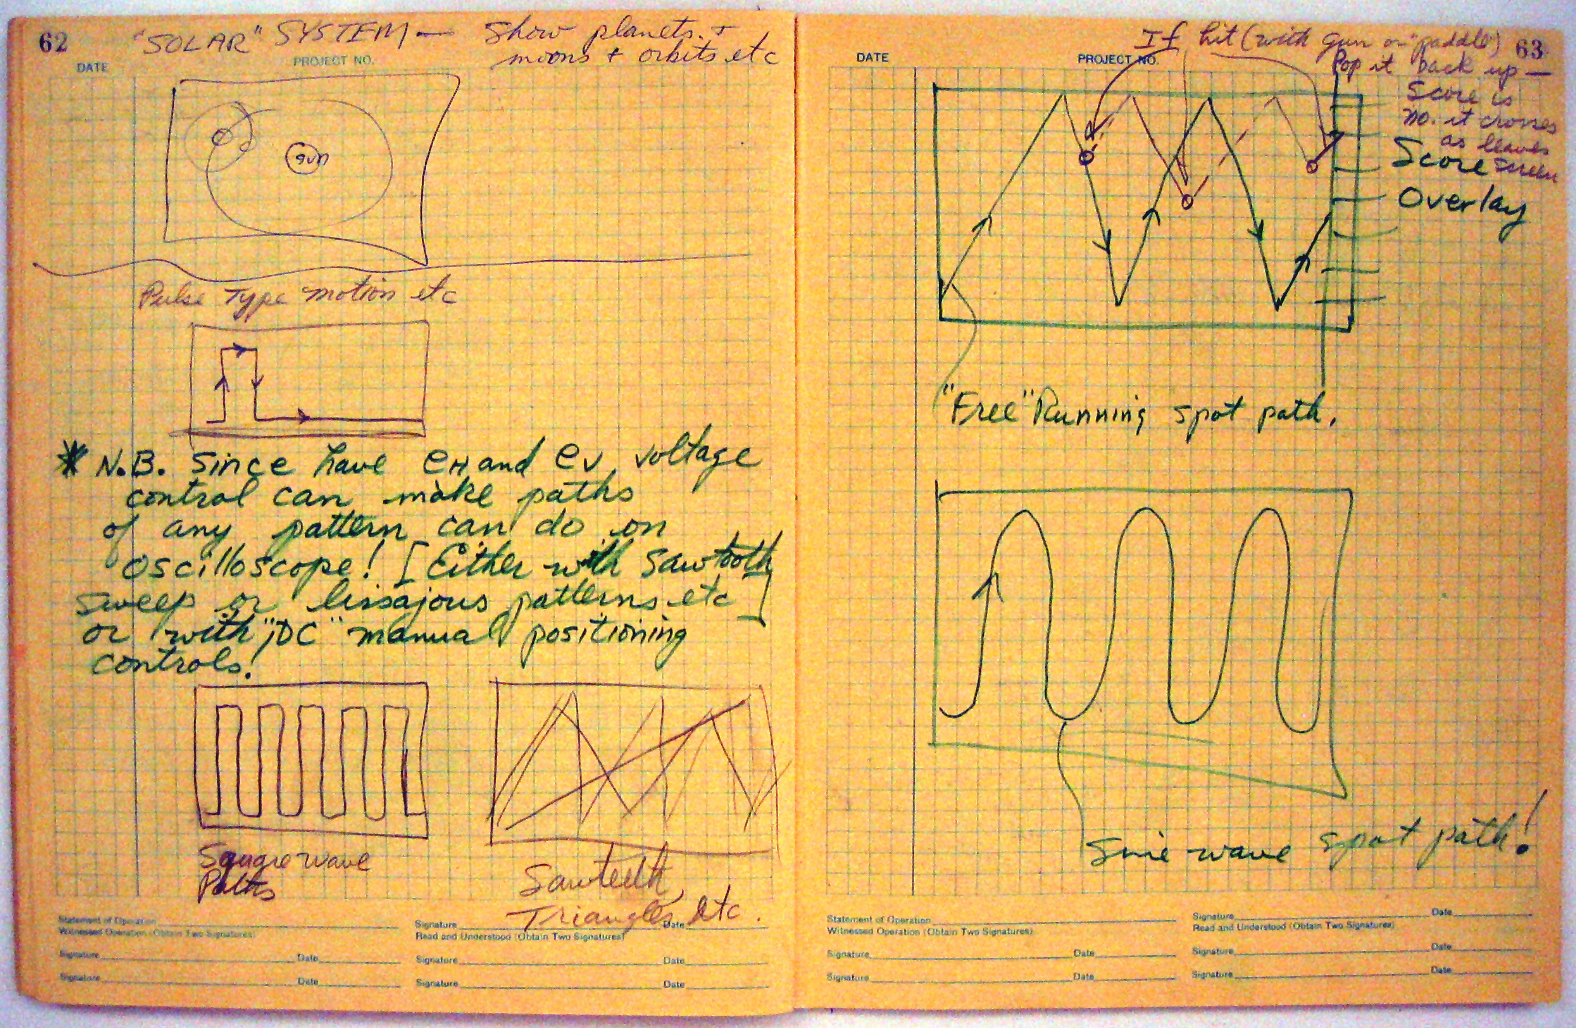 62
"SOLAR" SYSTEM — Show planets +
moons + orbits etc
DATE
PROJECT NO.
Pulse Type motion etc
* N.B. Since have eH and eV voltage
control can make paths
of any pattern can do on
oscilloscope! [Either with sawtooth
sweep or lissajous patterns etc]
or with "DC" manual positioning
controls!
Square wave
Paths
Sawteeth,
Triangles etc.
Statement of Operation
Witnessed Operation (Obtain Two Signatures)
Signature Date
Signature Date
Signature Date
Read and Understood (Obtain Two Signatures)
Signature Date
Signature Date
63
If hit (with gun or "paddle")
Pop it back up —
DATE
PROJECT NO.
Score is
no. it crosses
as leaves
screen
Score
Overlay
"Free" Running spot path.
Sine wave spot path!
Statement of Operation
Witnessed Operation (Obtain Two Signatures)
Signature Date
Signature Date
Signature Date
Read and Understood (Obtain Two Signatures)
Signature Date
Signature Date